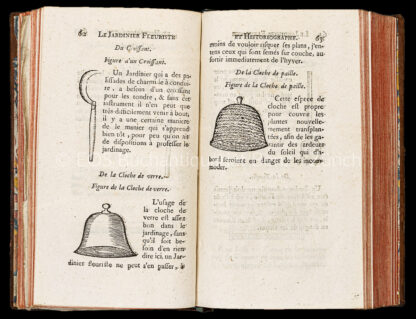 62 LE JARDINIER FLEURISTE
Du Croissant.
Figure d'un Croissant.
Un Jardinier qui a des pa-
lissades de charmille à condui-
re, a besoin d'un croissant
pour les tondre, & sans cet
instrument il n'en peut que
très-difficilement venir à bout,
il y a une certaine maniére
de le manier qui s'apprend
bien tôt, pour peu qu'on ait
de dispositions à professer le
jardinage.
De la Cloche de verre.
Figure de la Cloche de verre.
L'usage de
la cloche de
verre est assez
bon dans le
jardinage, sans
qu'il soit be-
soin d'en rien
dire ici, un Jar-
dinier fleuriste ne peut s'en passer, à
ET HISTORIOGRAPHE. 63
moins de vouloir risquer ses plans, j'en-
tens ceux qui sont semés sur couche, au
sortir immediatement de l'hyver.
De la Cloche de paille.
Figure de la Cloche de paille.
Cette espece de
cloche est propre
pour couvrir les
plantes nouvelle-
ment transplan-
tées, afin de les ga-
rantir des ardeurs
du soleil qui d'a-
bord seroient en danger de les incom-
moder.